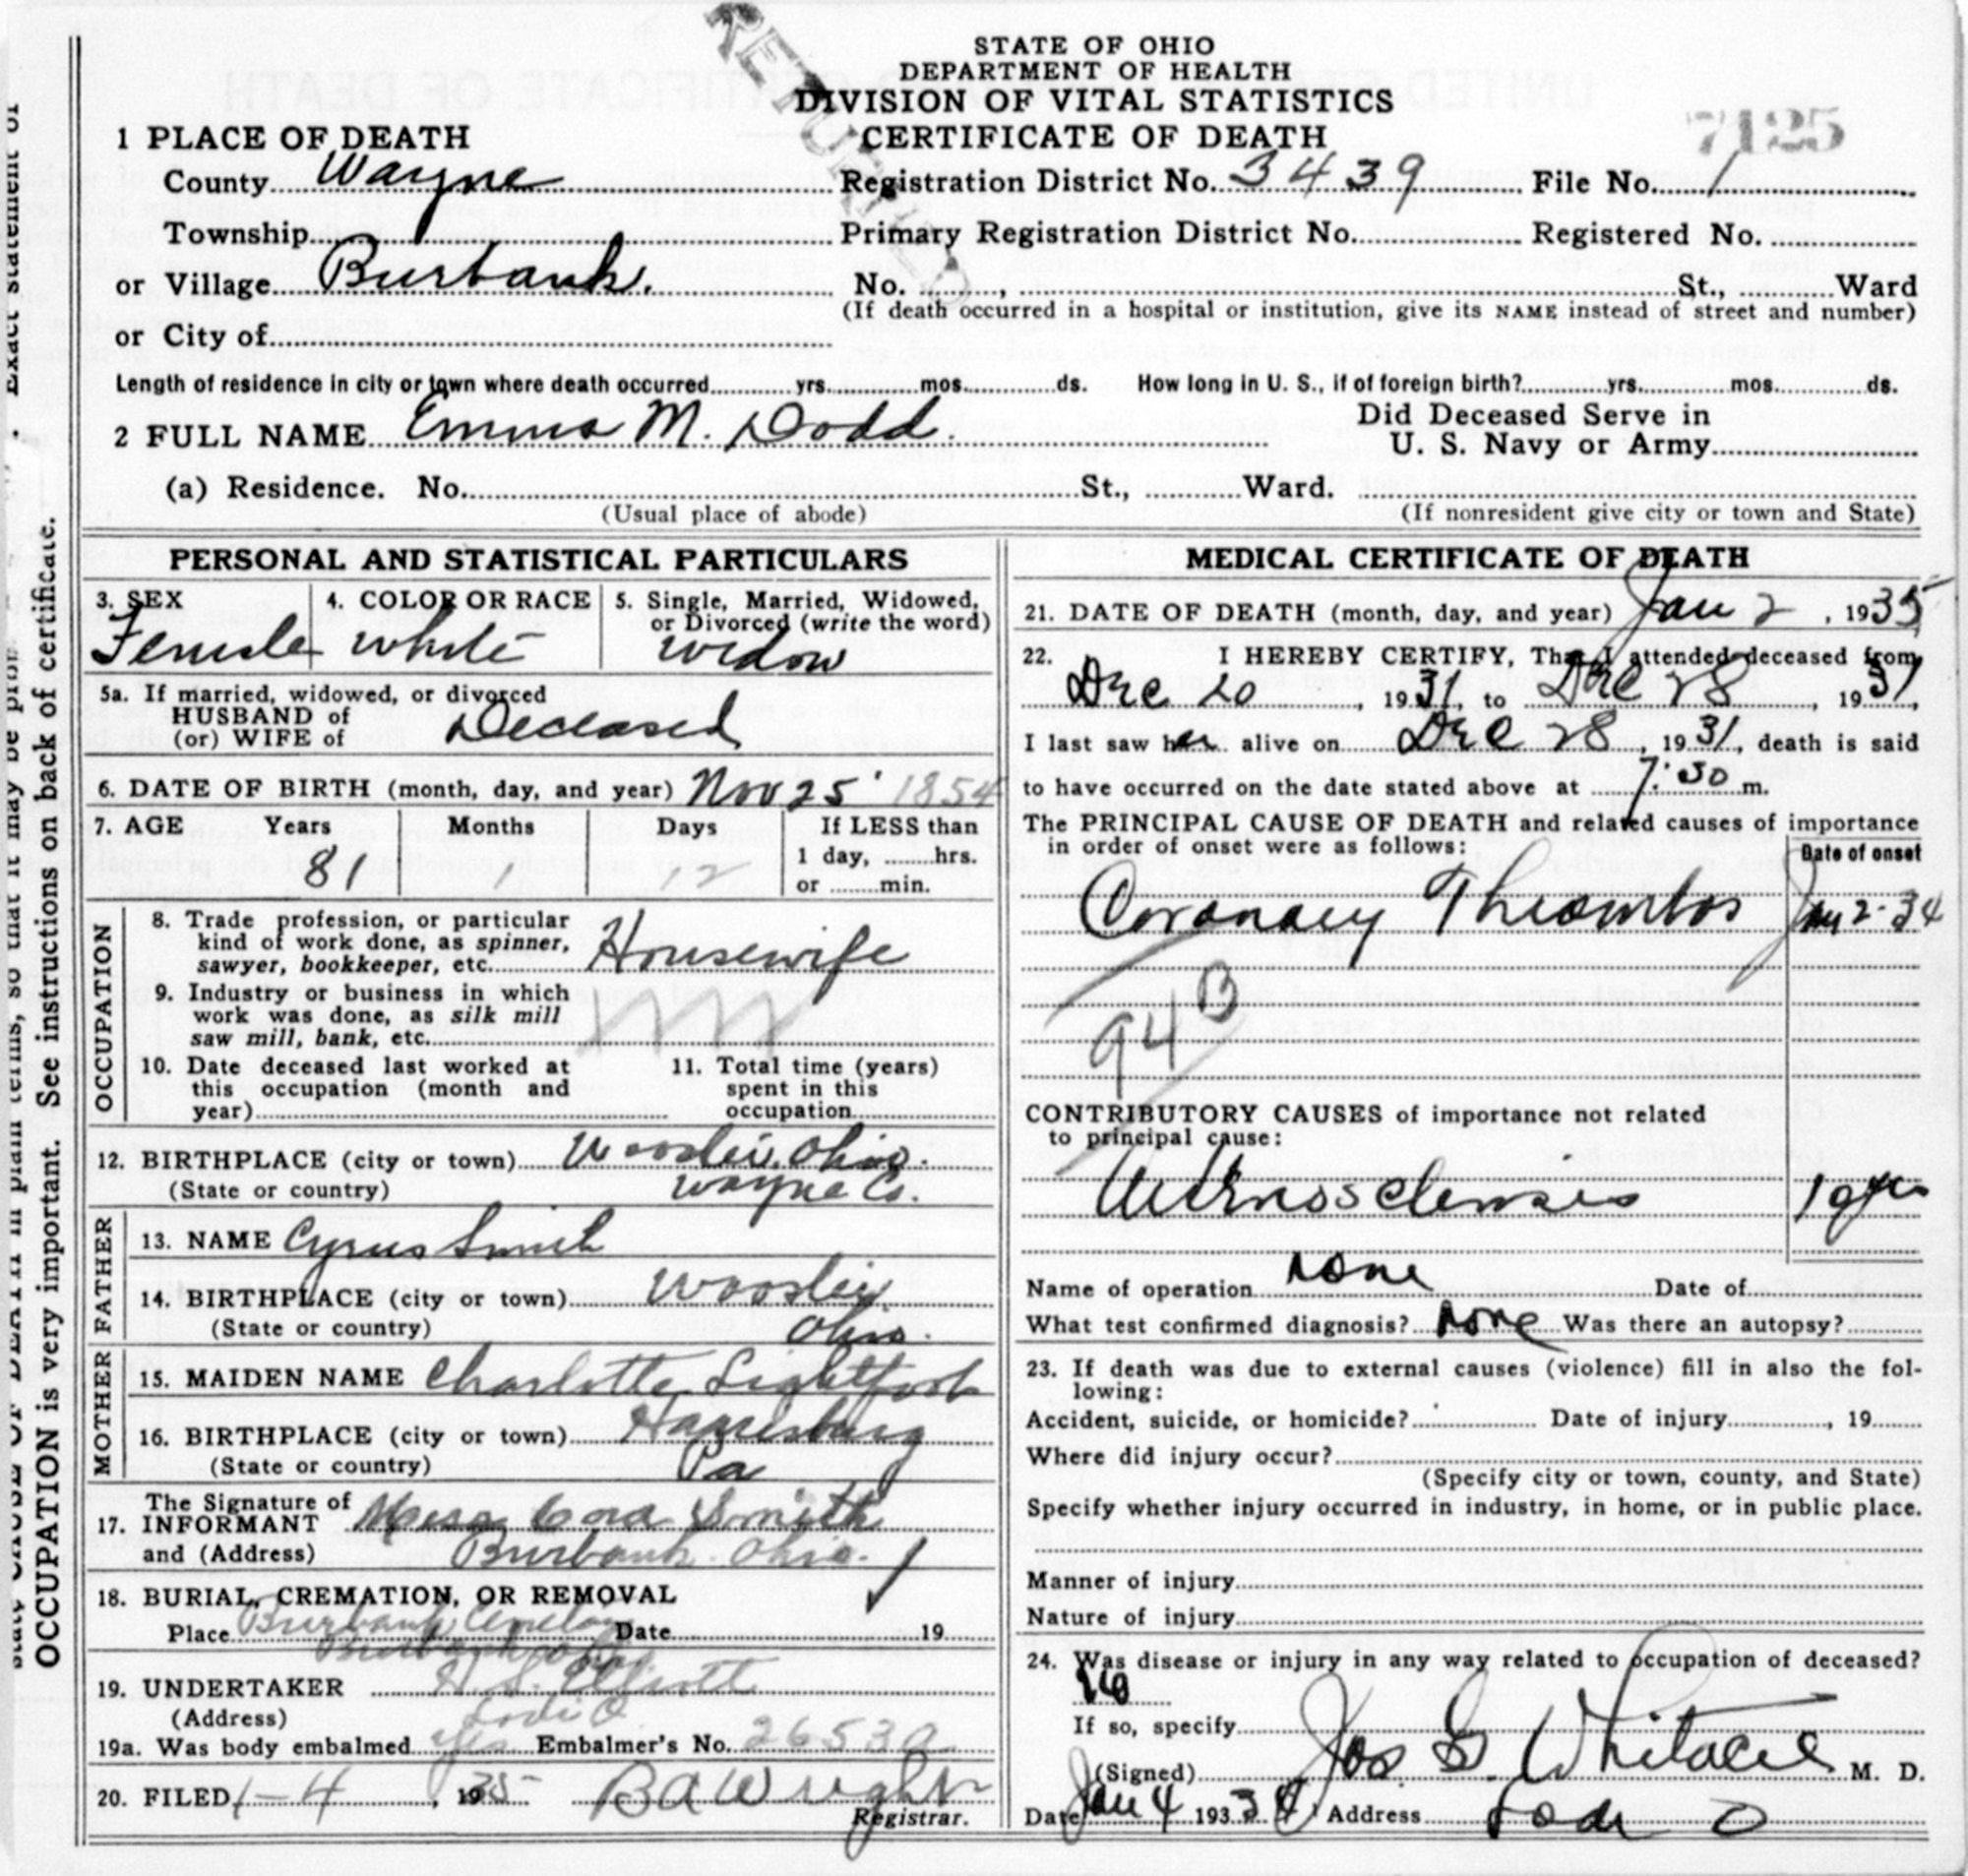 RETURNED
STATE OF OHIO
DEPARTMENT OF HEALTH
DIVISION OF VITAL STATISTICS
CERTIFICATE OF DEATH
7125
1 PLACE OF DEATH
County Wayne Registration District No. 3439 File No. 1
Township Primary Registration District No. Registered No.
or Village Burbank. No. , St., Ward
(If death occurred in a hospital or institution, give its NAME instead of street and number)
or City of
Length of residence in city or town where death occurred yrs. mos. ds. How long in U. S., if of foreign birth? yrs. mos. ds.
2 FULL NAME Emma M. Dodd. Did Deceased Serve in
U. S. Navy or Army
(a) Residence. No. St., Ward.
(Usual place of abode) (If nonresident give city or town and State)
PERSONAL AND STATISTICAL PARTICULARS
3. SEX 4. COLOR OR RACE 5. Single, Married, Widowed,
or Divorced (write the word)
Female white widow
5a. If married, widowed, or divorced
HUSBAND of
(or) WIFE of Deceased
6. DATE OF BIRTH (month, day, and year) Nov 25 1854
7. AGE Years Months Days If LESS than
1 day, hrs.
or min.
81 1 12
OCCUPATION
8. Trade profession, or particular
kind of work done, as spinner,
sawyer, bookkeeper, etc. Housewife
9. Industry or business in which
work was done, as silk mill
saw mill, bank, etc.
10. Date deceased last worked at
this occupation (month and
year)
11. Total time (years)
spent in this
occupation
12. BIRTHPLACE (city or town) Wooster, Ohio.
(State or country) Wayne Co.
FATHER
13. NAME Cyrus Smith
14. BIRTHPLACE (city or town) Wooster
(State or country) Ohio.
MOTHER
15. MAIDEN NAME Charlotte Lightfoot
16. BIRTHPLACE (city or town) Harrisburg
(State or country) Pa
17. The Signature of
INFORMANT Cora Smith
and (Address) Burbank. Ohio.
18. BURIAL, CREMATION, OR REMOVAL
Place Burbank Cemetery Date 19
Burbank
19. UNDERTAKER H. S. Elliott
(Address) Lodi O
19a. Was body embalmed yes Embalmer's No. 2653a
20. FILED 1-4, 1935 B A Wright
Registrar.
MEDICAL CERTIFICATE OF DEATH
21. DATE OF DEATH (month, day, and year) Jan 2, 1935
22. I HEREBY CERTIFY, That I attended deceased from
Dec 20, 1931, to Dec 28, 1931,
I last saw her alive on Dec 28, 1931, death is said
to have occurred on the date stated above at 7:30 m.
The PRINCIPAL CAUSE OF DEATH and related causes of importance
in order of onset were as follows:
Date of onset
Coronary Thrombos Jan 2-34
94 B
CONTRIBUTORY CAUSES of importance not related
to principal cause:
Name of operation none Date of
What test confirmed diagnosis? none Was there an autopsy?
23. If death was due to external causes (violence) fill in also the fol-
lowing:
Accident, suicide, or homicide? Date of injury , 19
Where did injury occur?
(Specify city or town, county, and State)
Specify whether injury occurred in industry, in home, or in public place.
Manner of injury
Nature of injury
24. Was disease or injury in any way related to occupation of deceased?
No
If so, specify
(Signed) Jos G. Whitacre M. D.
Date Jan 4 193 Address Lodi O
OCCUPATION is very important. See instructions on back of certificate.